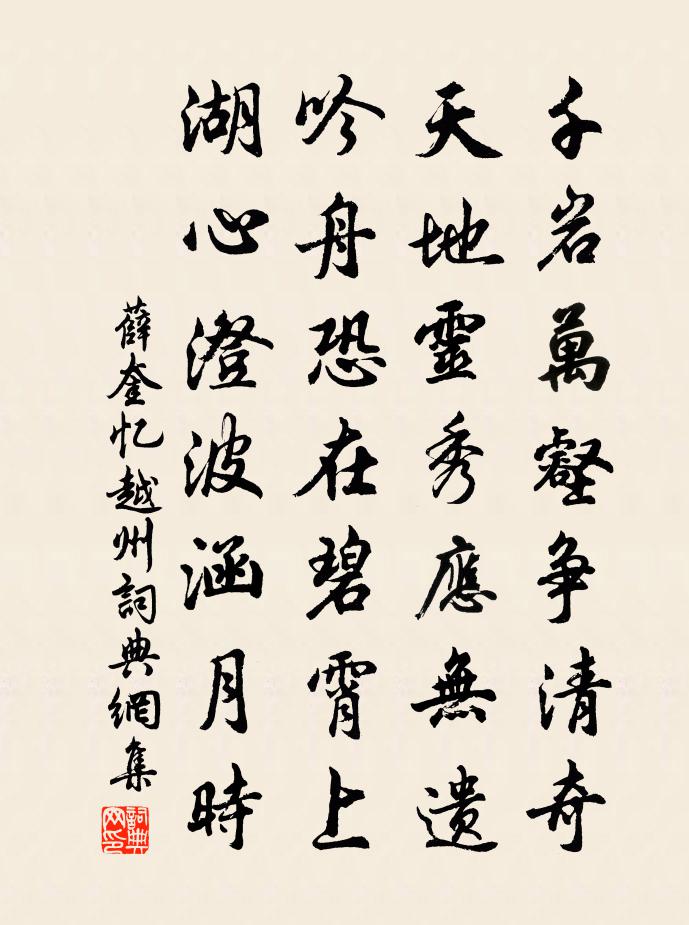 千岩萬壑争清奇
天地靈秀應無遗
吟舟恐在碧霄上
湖心澄波涵月時
薛奎忆越州詞典網集
詞典网印